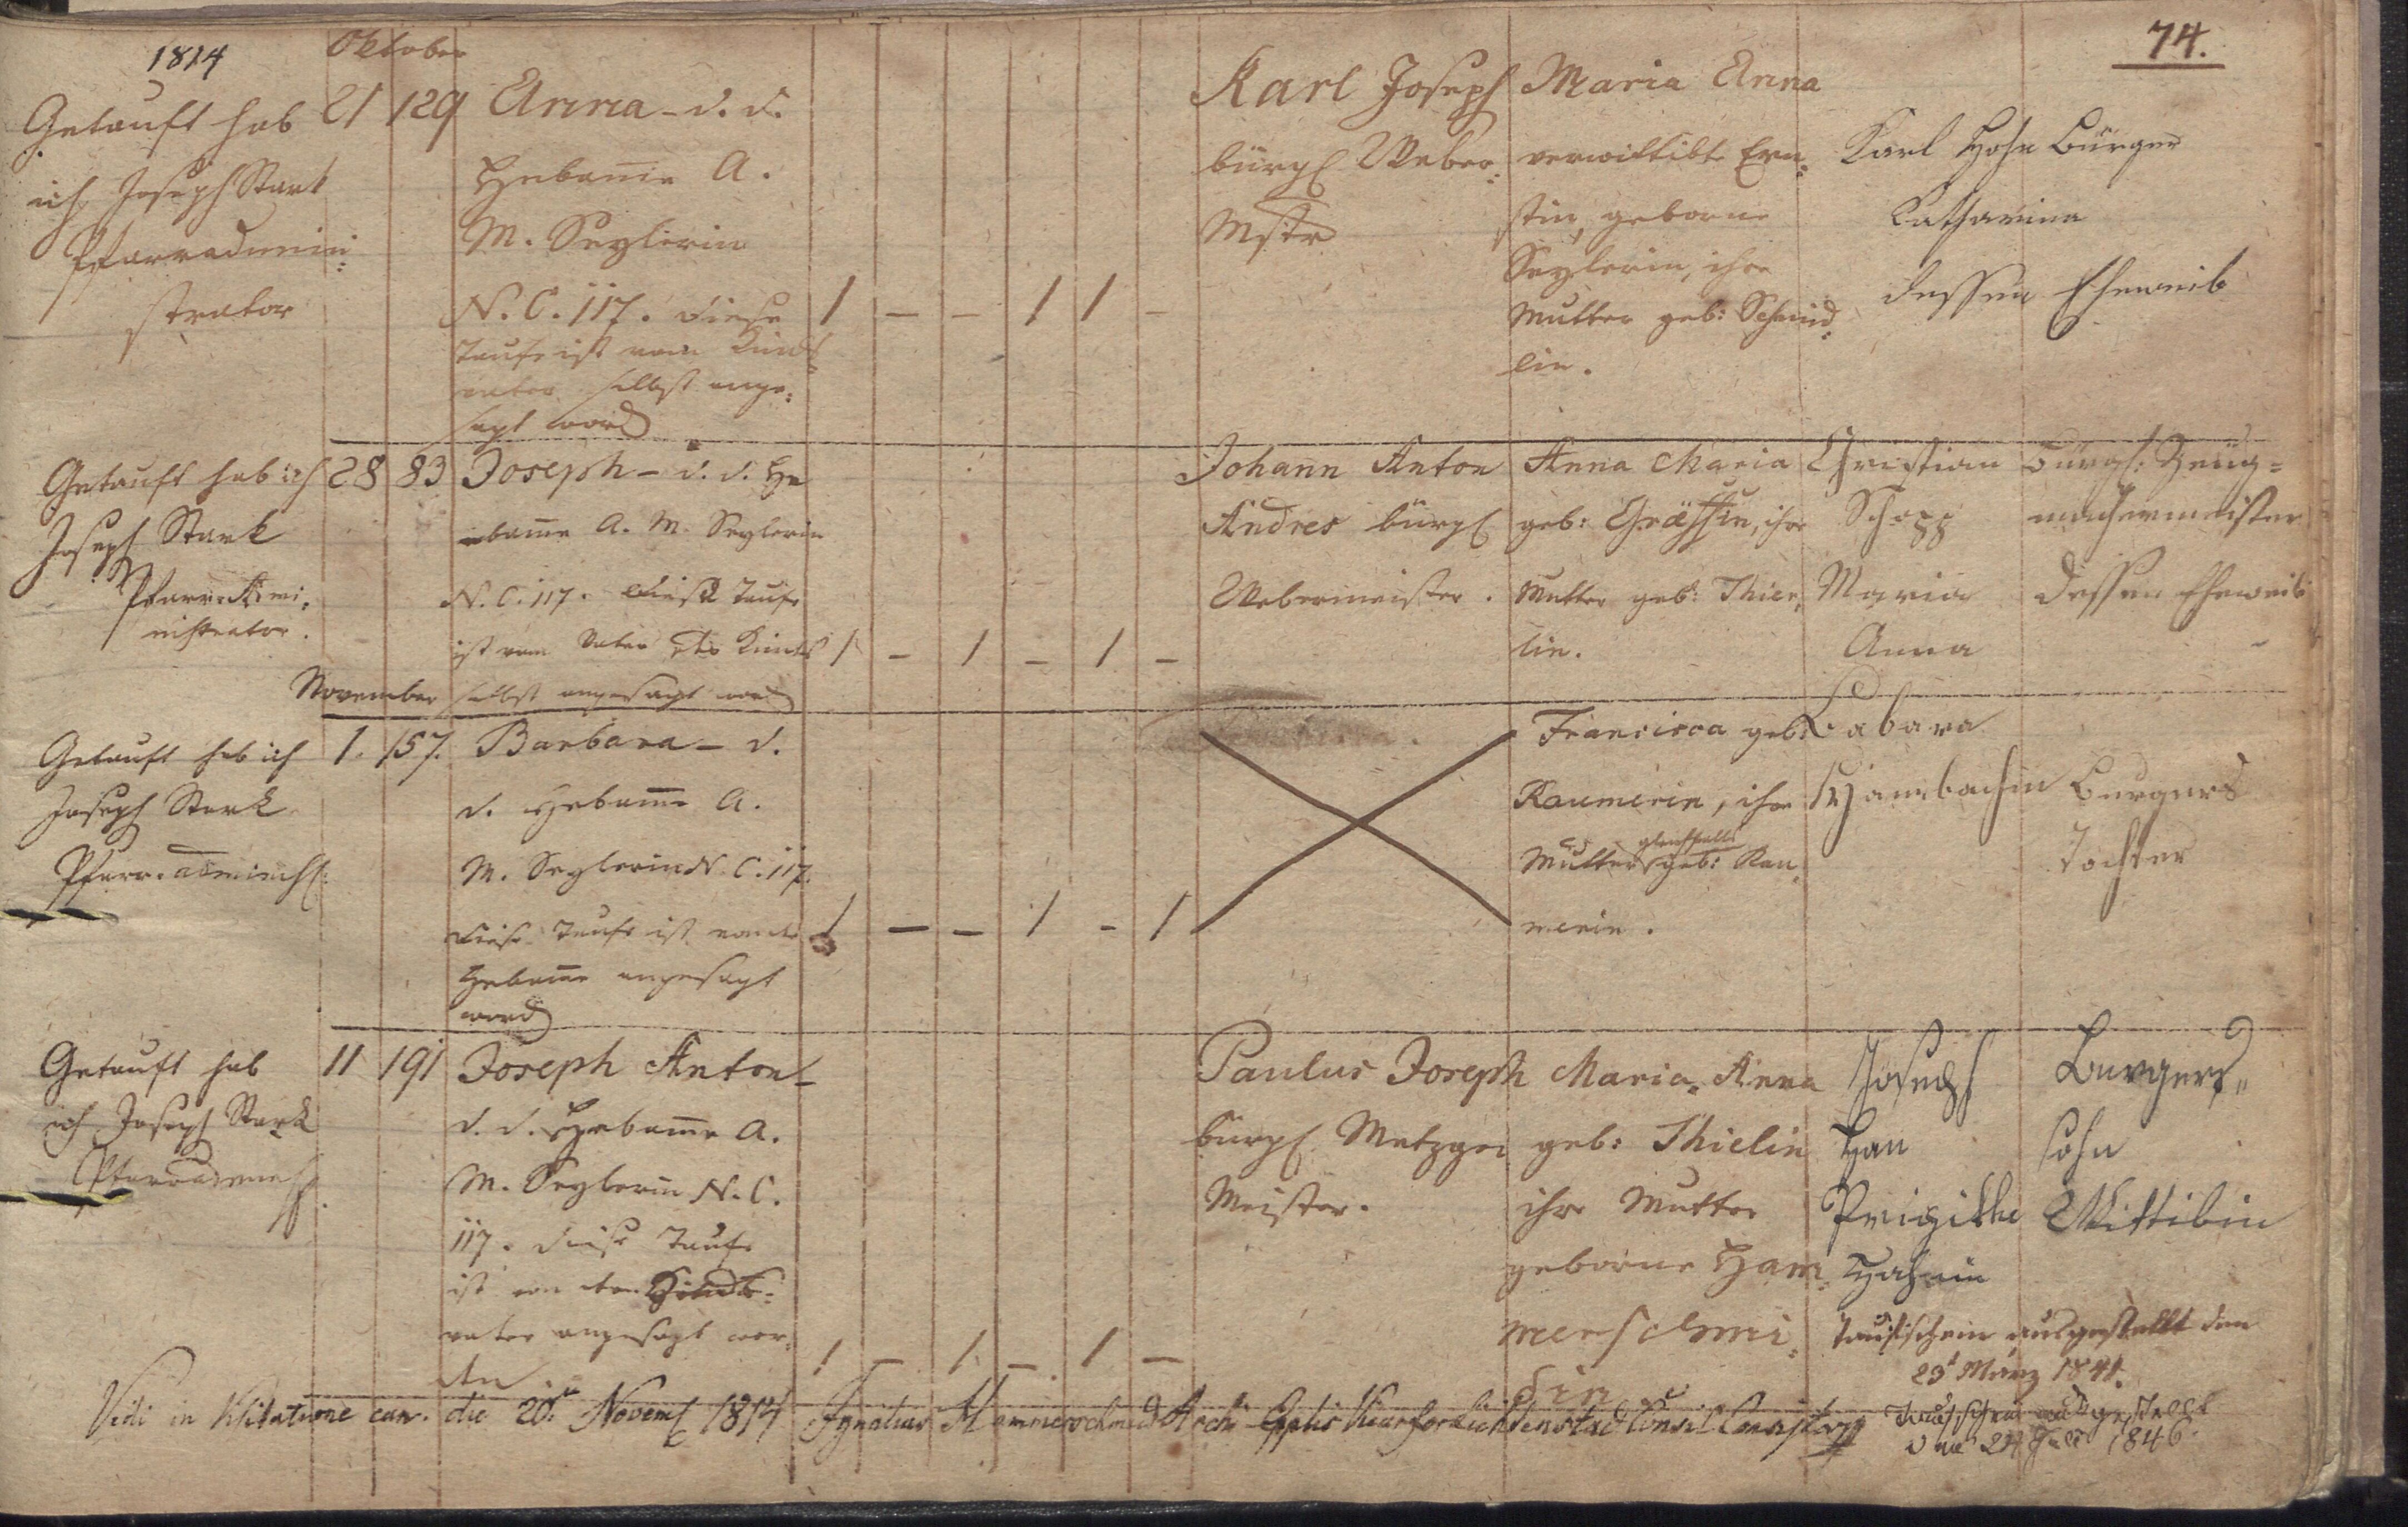 1814
Oktober
74.
Getauft hab
ich Joseph Stark
Pfarradmini:
strator
21 129 Anna - d. d.
Hebam̄e A.
M. Seylerin
N. C. 117. Diese
Taufe ist vom Kinds
vater selbst ange:
sagt word
1 — — 1 1 —
Karl Joseph
bürgl Weber:
Mstr
Maria Anna
verwittibte Ern:
stin, geborne
Seylerin, ihre
Mutter geb: Schmid
lin.
Karl Hohn Bürger
Catharina
dessen Eheweib
Getauft hab ich
Joseph Stark
Pfarr. Admi:
nistrator.
28 83 Joseph - d. d. He
bam̄e A. M. Seylerin
N. C. 117. Diese Taufe
ist vom Vater des Kindes
selbst angesagt word
1 — 1 — 1 —
Johann Anton
Andres bürgl
Webermeister.
Anna Maria
geb: Gräffin, ihre
Mutter geb: Thier,
lin.
Christian
Schopp
Maria
Anna
bürgl: Zeug=
machermeister
dessen Eheweib
November
Getauft hab ich
Joseph Stark
Pfarr. administ.
1. 157. Barbara - d.
d. Hebam̄e A.
M. Seylerin N. C. 117.
Diese Taufe ist von der
Hebam̄e angesagt
word
1 — — 1 — 1
Francisca geb:
Raumerin, ihre
gleichfalls
Mutter geb: Rau,
merin.
Burgers
Tochter
Getauft hab
ich Joseph Stark
Pfarradminist.
11 191 Joseph Anton -
d. d. Hebam̄e A.
M. Seylerin N. C.
117. Diese Taufe
ist von dem Kinds-
vater angesagt wor:
den
1 — 1 — 1 —
Paulus Joseph
bürgl. Metzger
Meister.
Maria Anna
geb: Thielin
ihre Mutter
geborne Ham,
merschmi:
din
Joseph
Han
Prigitha
Hahnin
Burgers„
sohn
Wittibin
Taufschein ausgestellt den
23t März 1841.
Taufschein ausgestellt
den 24 Juli 1846.
Vidi in Visitatione can. die 20. Novemb 1814 Ignatius Hammerschmid